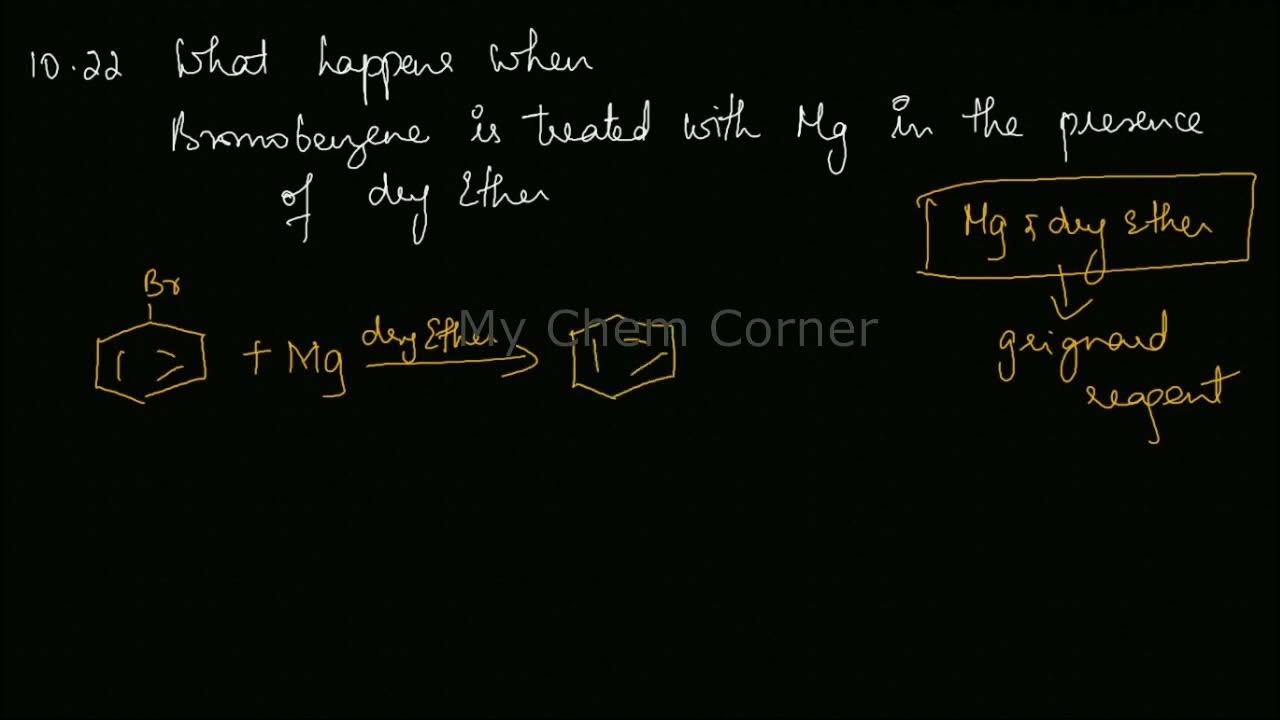 10.22 What happens when
Bromobenzene is treated with Mg in the presence
of dry Ether
Mg & dry Ether
grignard
reagent
Br
+ Mg
dry Ether
My Chem Corner